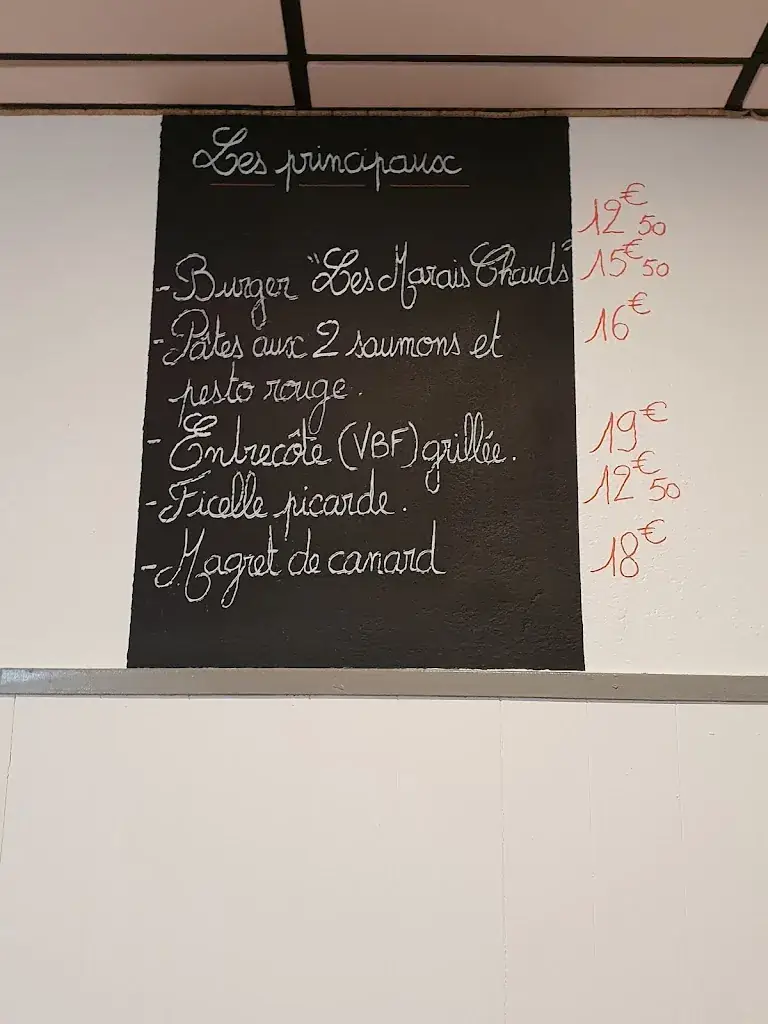 Les principaux
12€50
- Burger "Les Marais Chauds" 15€50
- Pâtes aux 2 saumons et 16€
pesto rouge.
- Entrecôte (VBF) grillée. 19€
- Ficelle picarde. 12€50
- Magret de canard 18€